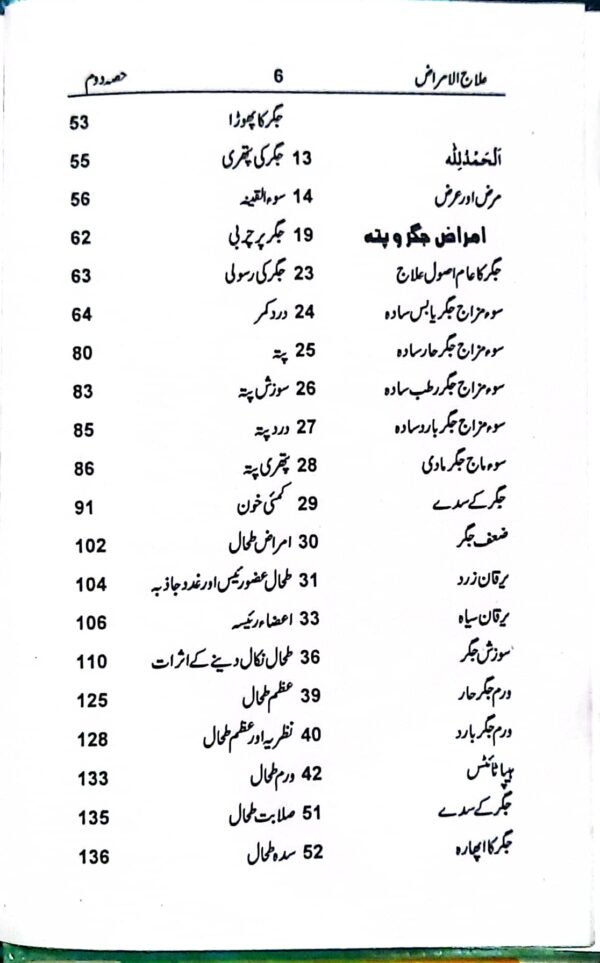 علاج الامراض 6 حصہ دوم
اَلْحَمْدُلِلّٰہ 13
مرض اور عرض 14
امراض جگر و پتہ 19
جگر کا عام اصول علاج 23
سوء مزاج جگر یابس سادہ 24
سوء مزاج جگر حار سادہ 25
سوء مزاج جگر رطب سادہ 26
سوء مزاج جگر بارد سادہ 27
سوء ماج جگر مادی 28
جگر کے سدے 29
ضعف جگر 30
یرقان زرد 31
یرقان سیاہ 33
سوزش جگر 36
ورم جگر حار 39
ورم جگر بارد 40
ہیپاٹائٹس 42
جگر کے سدے 51
جگر کا اپھارہ 52
جگر کا پھوڑا 53
جگر کی پتھری 55
سوء القینہ 56
جگر پر چربی 62
جگر کی رسولی 63
درد کمر 64
پتہ 80
سوزش پتہ 83
درد پتہ 85
پتھری پتہ 86
کمئی خون 91
امراض طحال 102
طحال عضو رئیس اور غدد جاذبہ 104
اعضاء رئیسہ 106
طحال نکال دینے کے اثرات 110
عظم طحال 125
نظریہ اور عظم طحال 128
ورم طحال 133
صلابت طحال 135
سدہ طحال 136